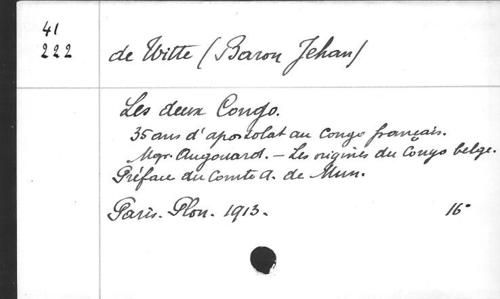 41
222
de Witte (Baron Jehan)
Les deux Congo.
35 ans d'apostolat au Congo français.
Mgr. Augouard. – Les origines du Congo belge.
Préface du Comte A. de Mun.
Paris. Plon. 1913. 16°